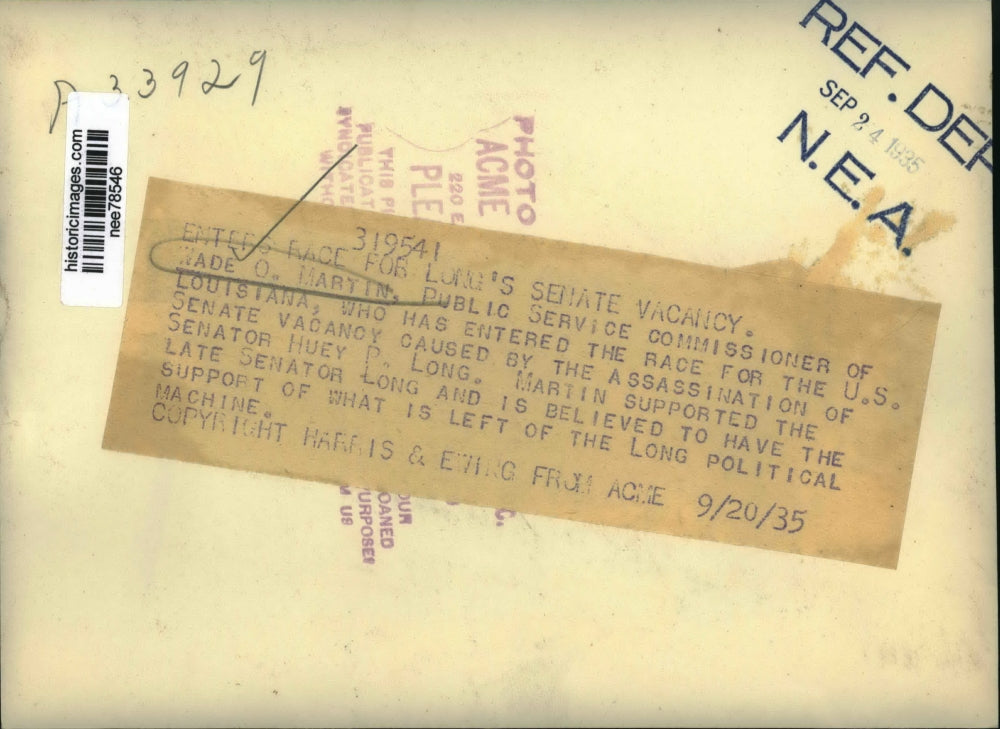 P 33929
historicimages.com
nee78546
REF. DEP
SEP 24 1935
N.E.A.
PHOTO
ACME
220 E
PLE
THIS
PUBLICAT
SYNDICATE
319541
ENTERS RACE FOR LONG'S SENATE VACANCY.
WADE O. MARTIN, PUBLIC SERVICE COMMISSIONER OF
LOUISIANA, WHO HAS ENTERED THE RACE FOR THE U.S.
SENATE VACANCY CAUSED BY THE ASSASSINATION OF
SENATOR HUEY P. LONG. MARTIN SUPPORTED THE
LATE SENATOR LONG AND IS BELIEVED TO HAVE THE
SUPPORT OF WHAT IS LEFT OF THE LONG POLITICAL
MACHINE.
COPYRIGHT HARRIS & EWING FROM ACME 9/20/35
C.
OUR
OANED
URPOSES
M US